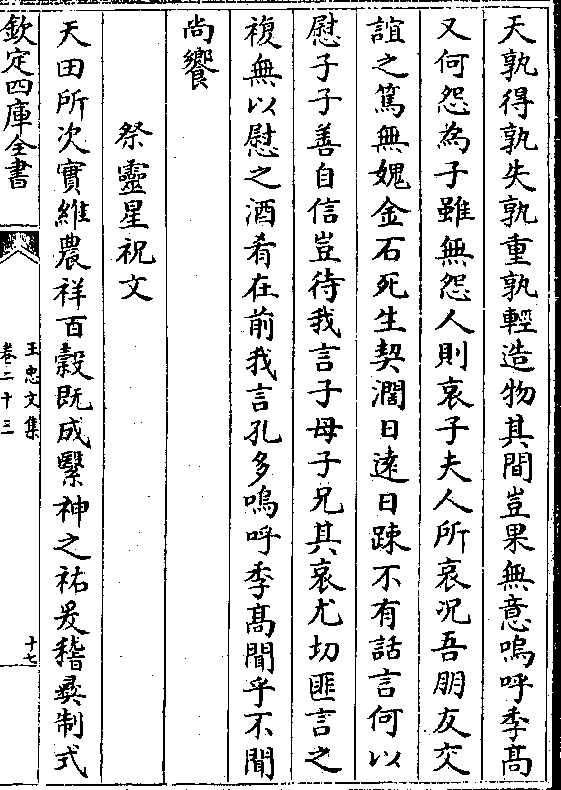 天孰得孰失孰重孰輕造物其間豈果無意嗚呼季髙
又何怨為子雖無怨人則哀子夫人所哀况吾朋友交
誼之篤無媿金石死生契濶日逺日踈不有話言何以
慰子子善自信豈待我言子母子兄其哀尤切匪言之
複無以慰之酒肴在前我言孔多嗚呼季髙聞乎不聞
尚饗
祭靈星祝文
天田所次實維農祥百穀既成繄神之祐爰稽彛制式
欽定四庫全書
王忠文集
卷二十三
十七